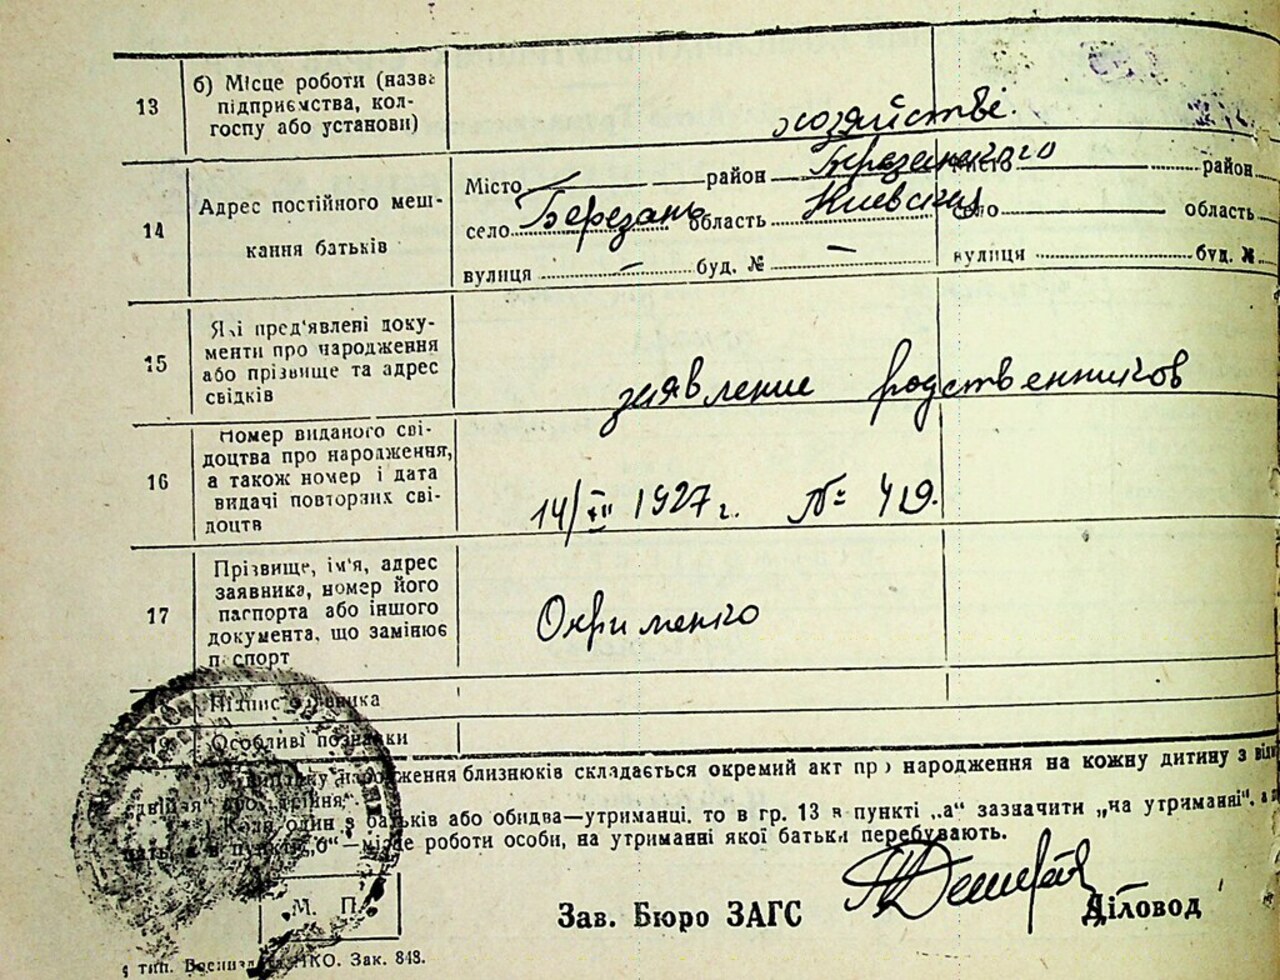 13
б) Місце роботи (назва
підприємства, кол-
госпу або установи)
хозяйстві
14
Адрес постійного меш-
кання батьків
Місто район Березанського Місто район
село Березань область Киевская село область
вулиця — буд. № — вулиця буд. №
15
Які пред'явлені доку-
менти про народження
або прізвище та адрес
свідків
заявление родственников
16
Номер виданого сві-
доцтва про народження,
а також номер і дата
видачі повторних сві-
доцтв
14/III 1927 г. № 419.
17
Прізвище, ім'я, адрес
заявника, номер його
паспорта або іншого
документа, що замінює
паспорт
Окрименко
Підпис заявника
19
Особливі познавки
народження близнюків складається окремий акт про народження на кожну дитину з
„двійня“ або „трійня“.
Коли один з батьків або обидва—утриманці, то в гр. 13 в пункті „а“ зазначити „на утриманні“, а
пункті „б“—місце роботи особи, на утриманні якої батьки перебувають.
М. П.
Зав. Бюро ЗАГС
Діловод
тип. Воениздата НКО. Зак. 848.